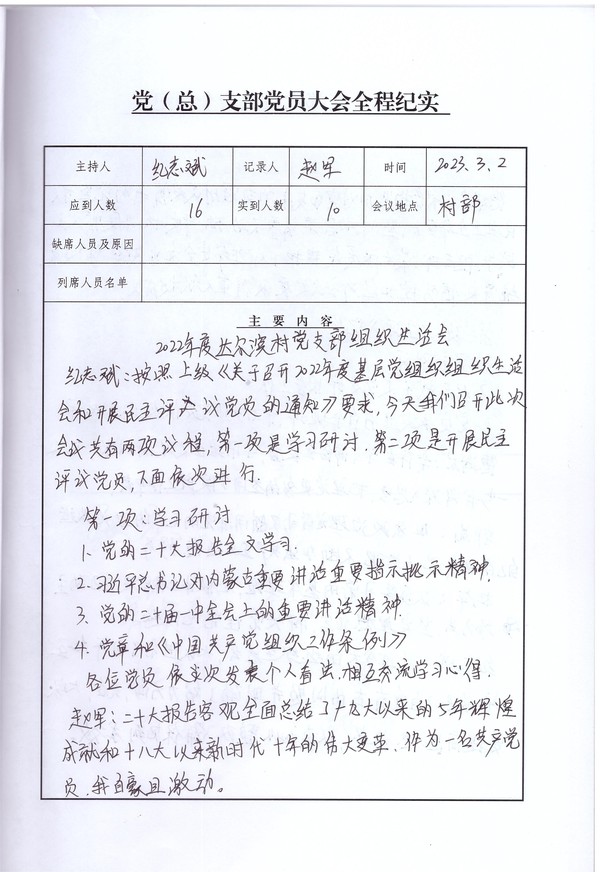 党（总）支部党员大会全程纪实
主持人 纪志斌 记录人 赵军 时间 2023.3.2
应到人数 16 实到人数 10 会议地点 村部
缺席人员及原因
列席人员名单
主要内容
2022年度达尔滨村党支部组织生活会
纪志斌：按照上级《关于召开2022年度基层党组织组织生活
会和开展民主评议党员的通知》要求，今天我们召开此次
会议共有两项议程，第一项是学习研讨.第二项是开展民主
评议党员，下面依次进行.
第一项：学习研讨
1、党的二十大报告全文学习.
2、习近平总书记对内蒙古重要讲话重要指示批示精神.
3、党的二十届一中全会上的重要讲话精神.
4、党章和《中国共产党组织工作条例》
各位党员依次发表个人看法.相互交流学习心得.
赵军：二十大报告客观全面总结了十九大以来的5年辉煌
成就和十八大以来新时代十年的伟大变革.作为一名共产党
员.我自豪且激动。